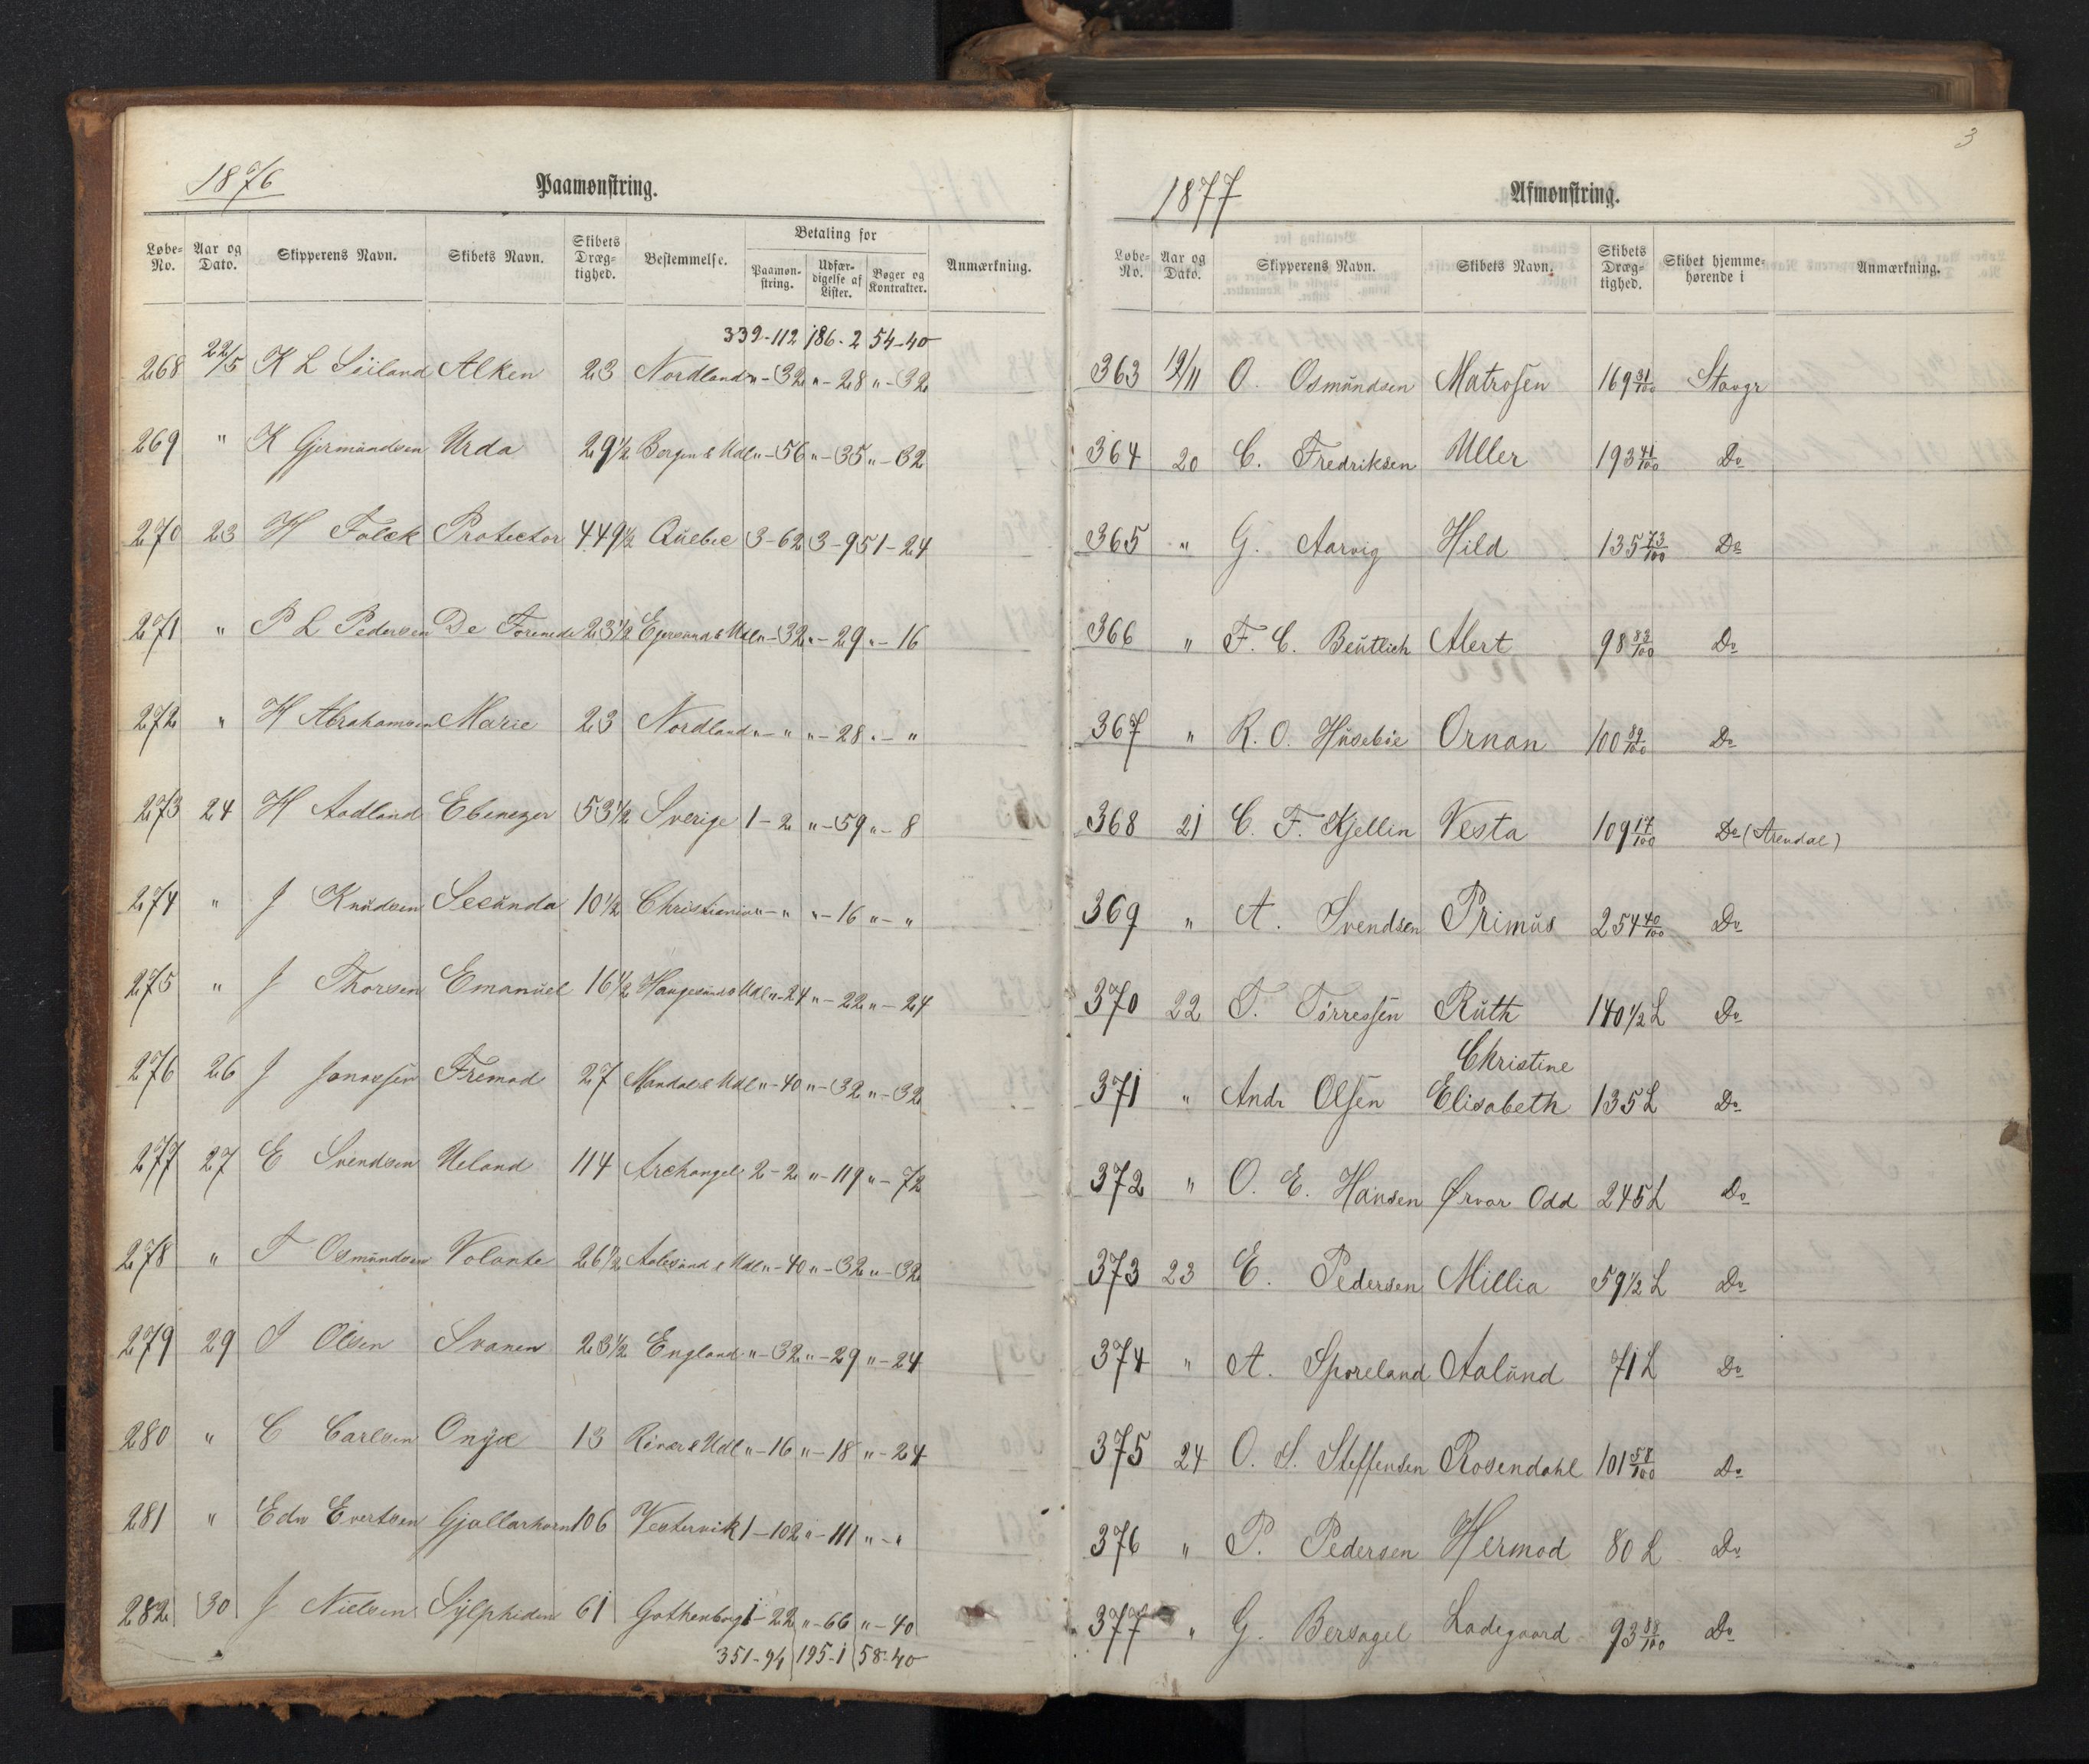 1876
Paamønstring.
Løbe-No. Aar og Dato. Skipperens Navn. Skibets Navn. Skibets Dræg-tighed. Bestemmelse. Betaling for Paamøn-string. Udfær-digelse af Lister. Bøger og Kontrakter. Anmærkning.
339-112 186-2 54-40
268 22/5 K L Söiland Alken 23 Nordland "-32 "-28 "-32
269 " K Gjermundsen Urda 29½ Bergen & Udl "-56 "-35 "-32
270 23 H Falck Protector 449½ Quebec 3-62 3-95 1-24
271 " P L Pedersen De Forenede 23½ Egersund & Udl "-32 "-29 "-16
272 " H Abrahamsen Marie 23 Nordland "-" "-28 "-"
273 24 H Aadland Ebenezer 53½ Sverige 1-2 "-59 "-8
274 " J Knudsen Secunda 10½ Christiania "-" "-16 "-"
275 " J Thorsen Emanuel 16½ Haugesund & Udl "-24 "-22 "-24
276 26 J Jonassen Fremad 27 Mandal & Udl "-40 "-32 "-32
277 27 E Svendsen Ueland 114 Archangel 2-2 "-119 "-72
278 " T Osmundsen Volante 26½ Aalesund & Udl "-40 "-32 "-32
279 29 S Olsen Svanen 23½ England "-32 "-29 "-24
280 " C Carlsen Onyx 13 Rivær & Udl "-16 "-18 "-24
281 " Edw Evertsen Gjallarhorn 106 Vestervik 1-102 "-111 "-"
282 30 J Nielsen Sylphiden 61 Gothenborg 1-22 "-66 "-40
351-94 195-1 58-40
3
1877
Afmønstring.
Løbe-No. Aar og Dato. Skipperens Navn. Skibets Navn. Skibets Dræg-tighed. Skibet hjemme-hørende i Anmærkning.
363 19/11 O. Osmundsen Matrosen 169 31/100 Stavgr
364 20 C. Fredriksen Uller 193 41/100 Do
365 " G. Aarvig Hild 135 73/100 Do
366 " F. C. Beutlich Alert 98 83/100 Do
367 " R. O. Husebøe Ornan 100 89/100 Do
368 21 C. F. Kjellin Vesta 109 17/100 Do (Arendal)
369 " A. Svendsen Primus 254 40/100 Do
370 22 T. Tørressen Ruth 140½ L Do
371 " Andr Olsen Christine Elisabeth 135 L Do
372 " O. E. Hansen Ørvar Odd 245 L Do
373 23 E. Pedersen Millia 59½ L Do
374 " A. Sporeland Aalund 71 L Do
375 24 O. S. Steffensen Rosendahl 101 58/100 Do
376 " P. Pedersen Hermod 80 L Do
377 " G. Bersagel Ladegaard 93 88/100 Do